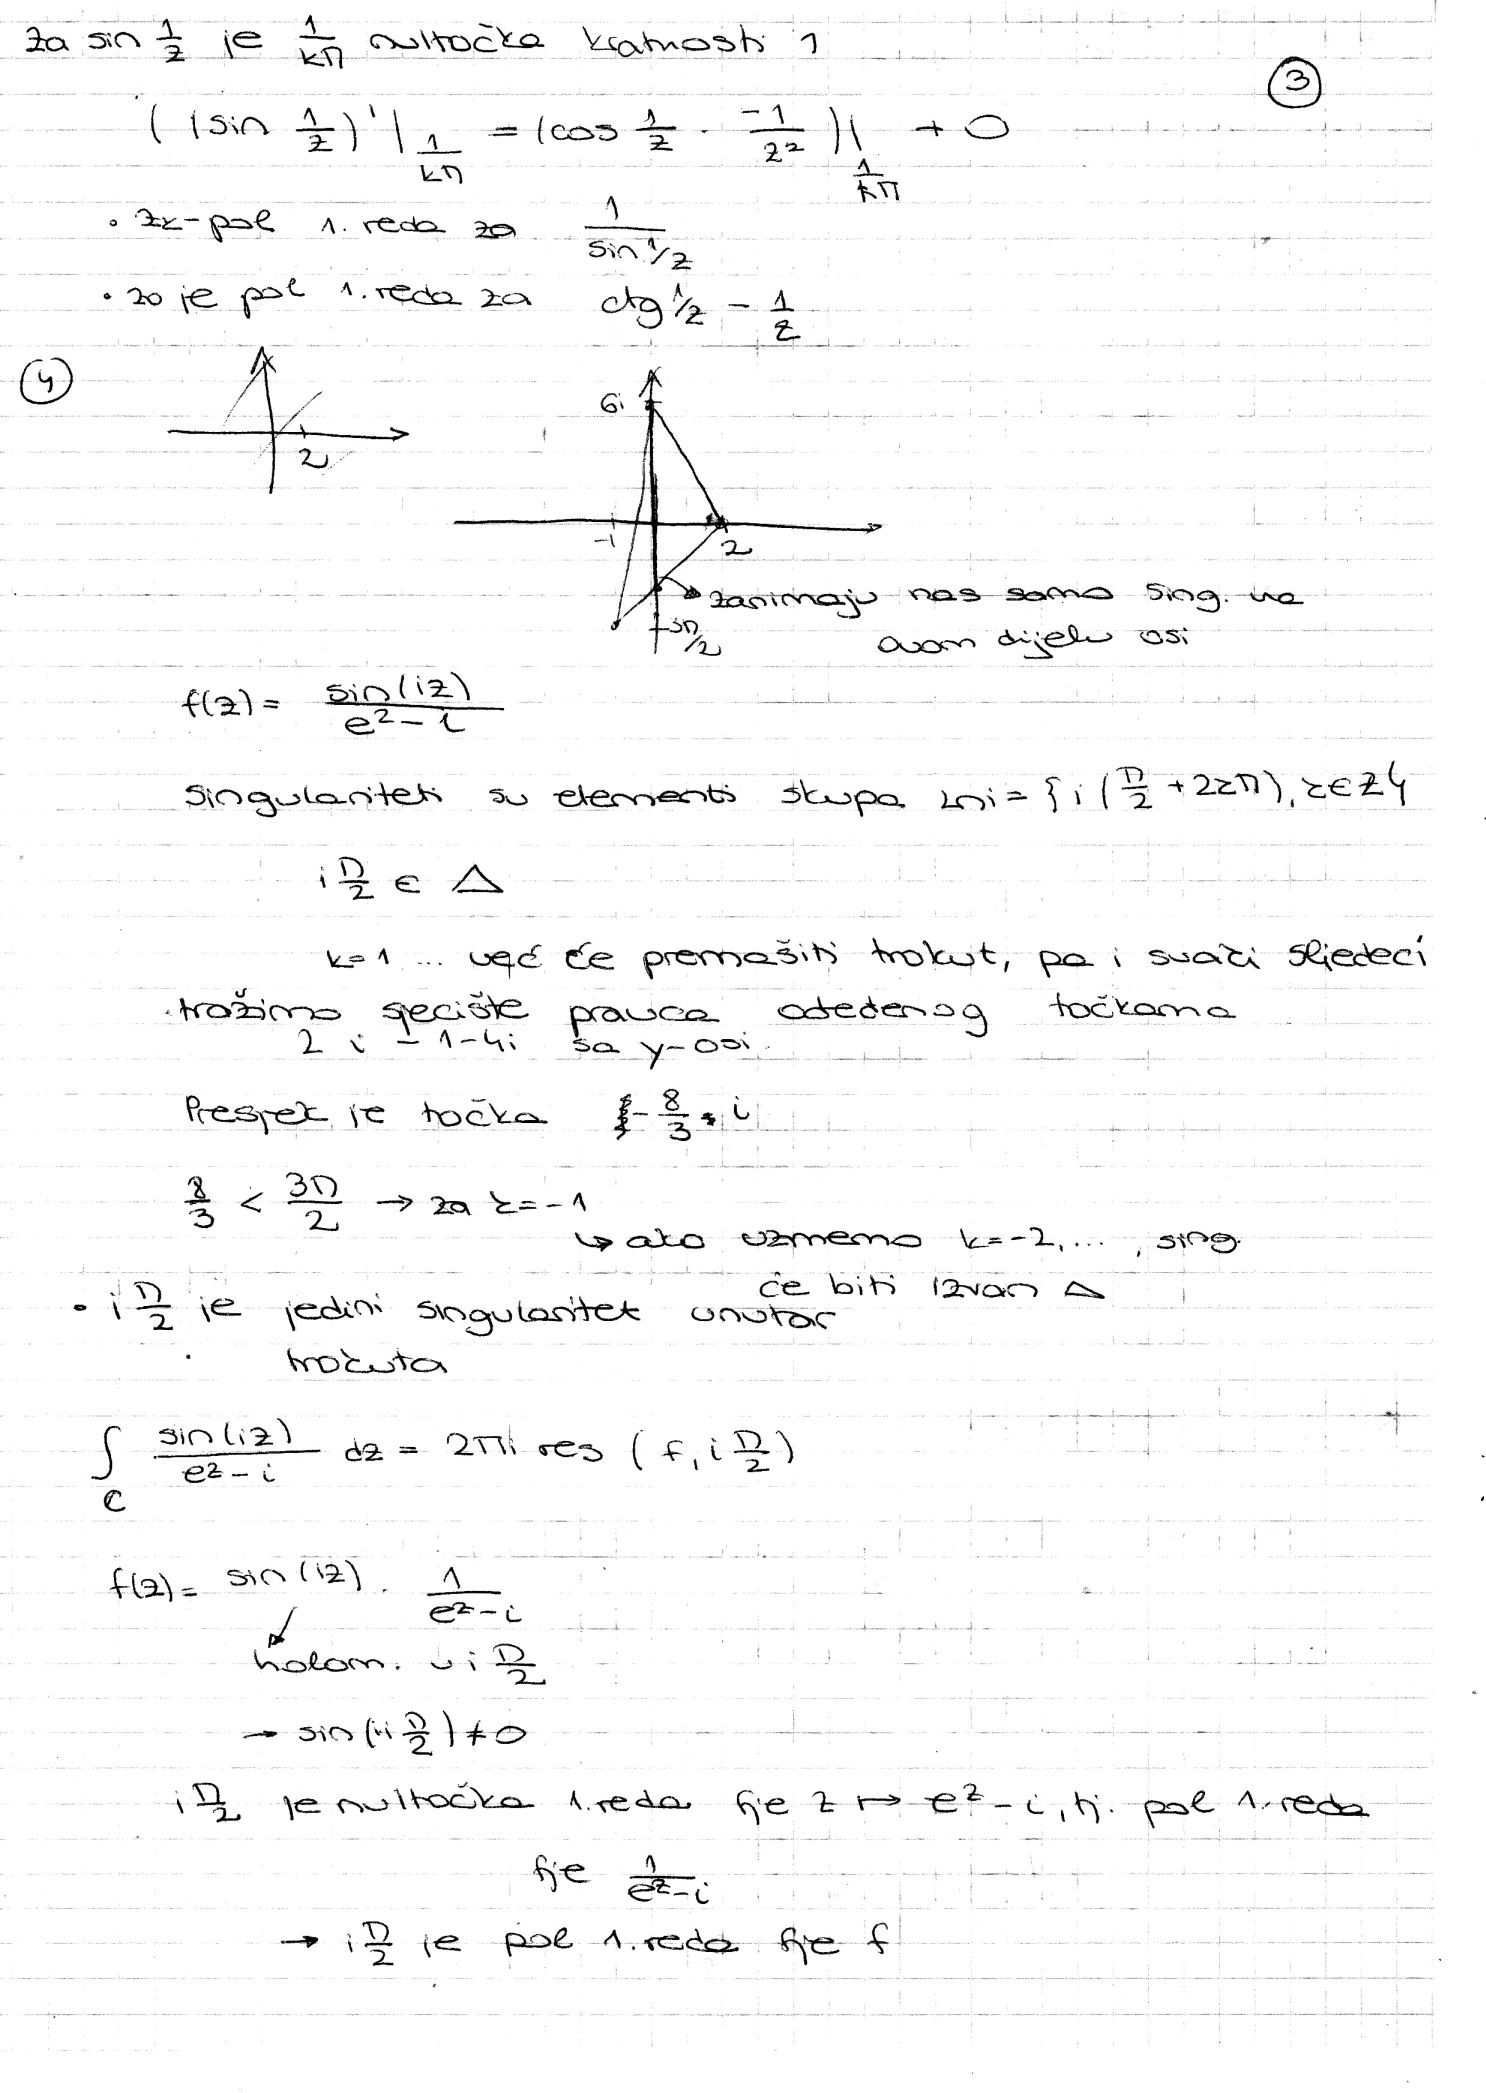 za sin 1/z je 1/kπ nultočka kratnosti 1
3
((sin 1/z)'|_{1/kπ} = (cos 1/z · -1/z²)|_{1/kπ} ≠ 0
• zk-pol 1. reda za 1/sin 1/z
• zo je pol 1. reda za ctg 1/z - 1/z
4
2
6i
-1
2
→ zanimaju nas samo sing. na
3π/2
ovom dijelu osi
f(z) = sin(iz)/e^z - i
singulariteti su elementi skupa Lni = {i(π/2 + 2kπ), k∈Z}
i π/2 ∈ △
k=1 ... već će premašiti trokut, pa i svaki sljedeći
tražimo sjecište pravca određenog točkama
2 i -1-4i sa y-osi.
Presjek je točka -8/3 · i
8/3 < 3π/2 → za k=-1
↳ ako uzmemo k=-2,..., sing.
će biti izvan △
• i π/2 je jedini singularitet unutar
trokuta
∫_C sin(iz)/e^z - i dz = 2πi res (f, i π/2)
f(z) = sin(iz) · 1/e^z - i
holom. u i π/2
→ sin(i·i π/2) ≠ 0
i π/2 je nultočka 1. reda fje z ↦ e^z - i, tj. pol 1. reda
fje 1/e^z - i
→ i π/2 je pol 1. reda fje f